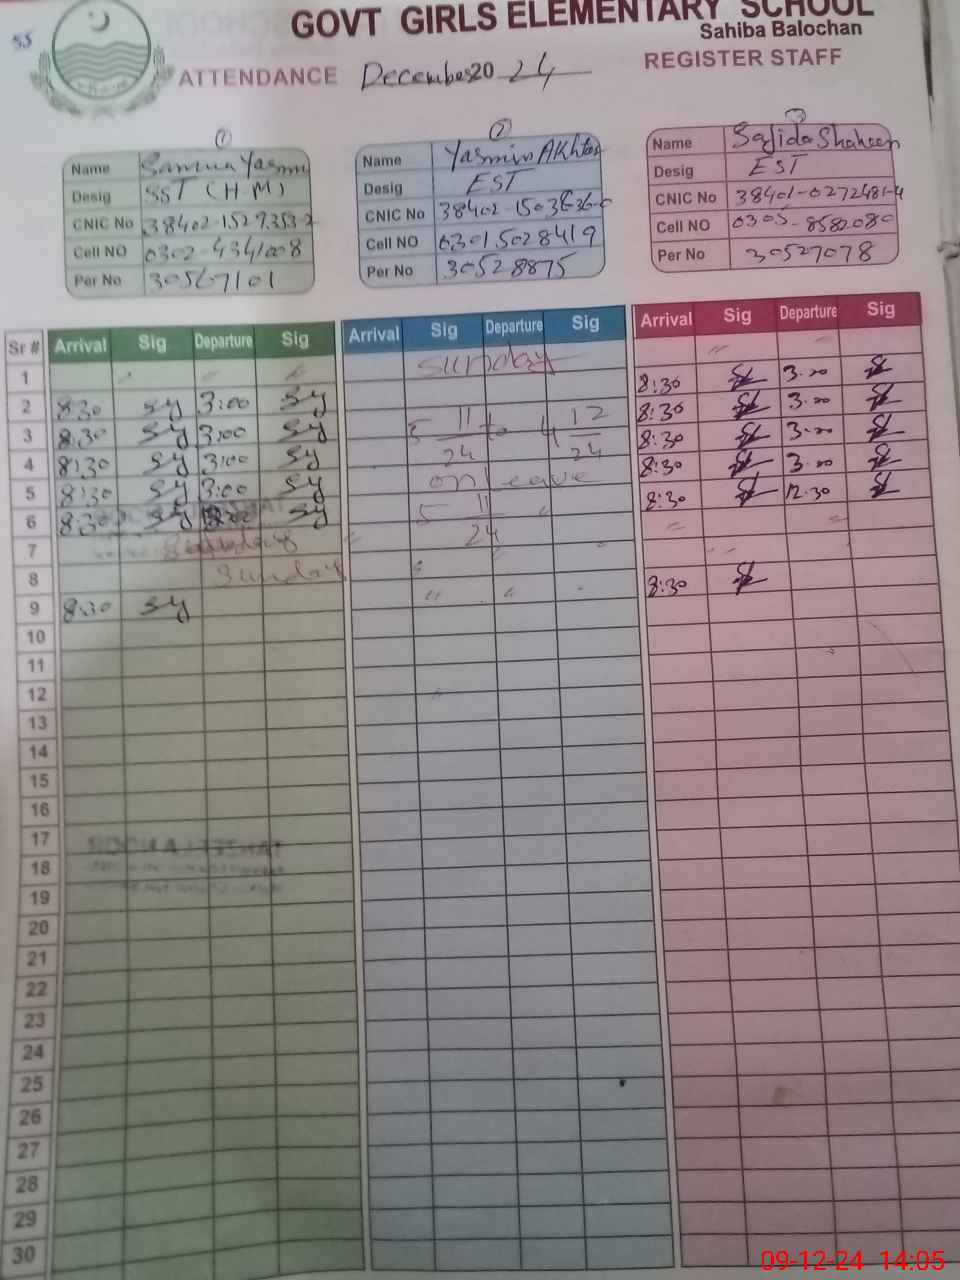 55
GOVT GIRLS ELEMENTARY SCHOOL
Sahiba Balochan
ATTENDANCE December 2024 REGISTER STAFF
① ② ③
Name Yasmin Name Yasmin AKhtar Name Sajida Shaheen
Desig SST (H-M) Desig EST Desig EST
CNIC No 38402-1527353-2 CNIC No 38402-1503636-6 CNIC No 38401-0272481-4
Cell NO 0302-4341008 Cell NO 03015028419 Cell NO 0305-8582080
Per No 30567101 Per No 30528875 Per No 30527078
Sr # Arrival Sig Departure Sig Arrival Sig Departure Sig Arrival Sig Departure Sig
1 " " " Sunday "
2 8:30 Sy 3:00 Sy 8:30 3.00
3 8:30 Sy 3:00 Sy 5 11/24 to 4 12/24 8:30 3.00
4 8:30 Sy 3:00 Sy 8:30 3.00
5 8:30 Sy 3:00 Sy on leave 8:30 3.00
6 8:30 Sy Sy 5 11/24 8:30 12.30
7
8 Sunday
9 8:30 Sy " " 8:30
10
11
12
13
14
15
16
17
18
19
20
21
22
23
24
25
26
27
28
29
30
09-12-24 14:05